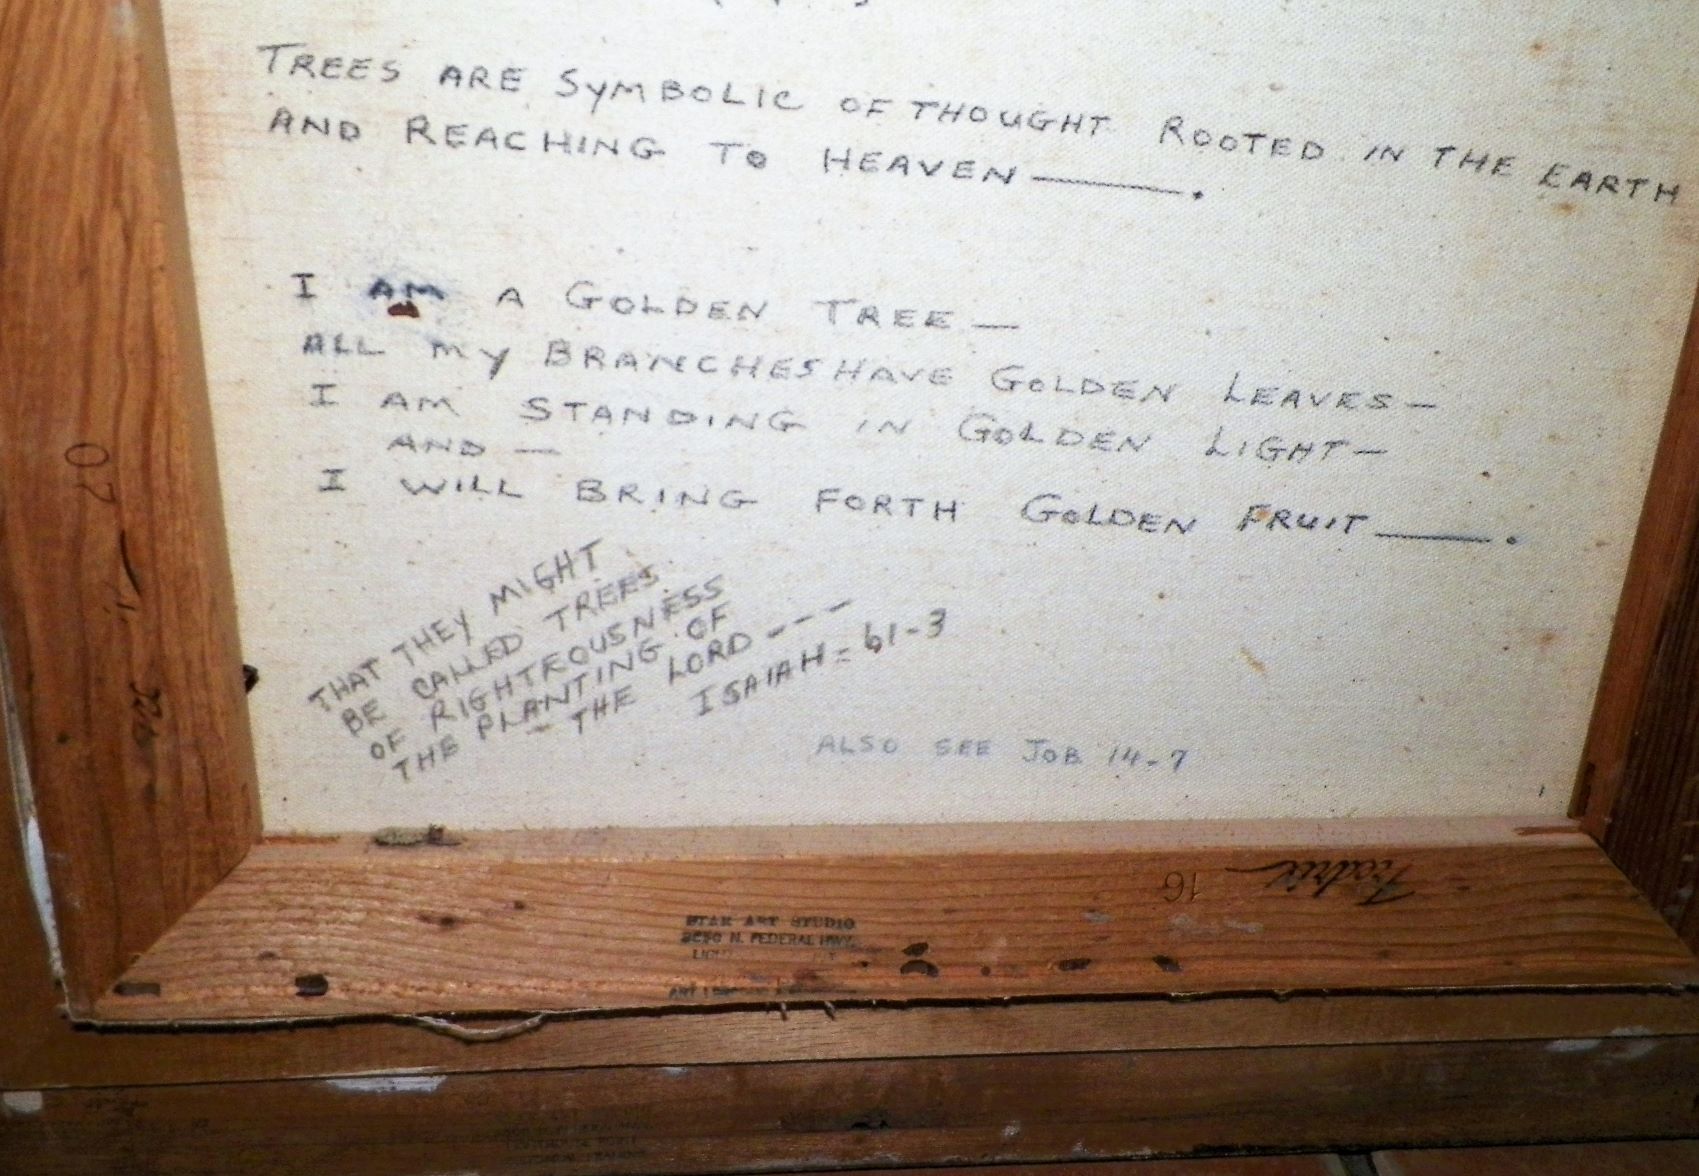 TREES ARE SYMBOLIC OF THOUGHT ROOTED IN THE EARTH
AND REACHING TO HEAVEN ——.
I AM A GOLDEN TREE —
ALL MY BRANCHES HAVE GOLDEN LEAVES —
I AM STANDING IN GOLDEN LIGHT —
AND —
I WILL BRING FORTH GOLDEN FRUIT ——.
THAT THEY MIGHT
BE CALLED TREES
OF RIGHTEOUSNESS
THE PLANTING OF
— THE LORD ---
ISAIAH = 61-3
ALSO SEE JOB 14-7
07
Fredrix
16
STAR ART STUDIO
N. FEDERAL HWY.
ART